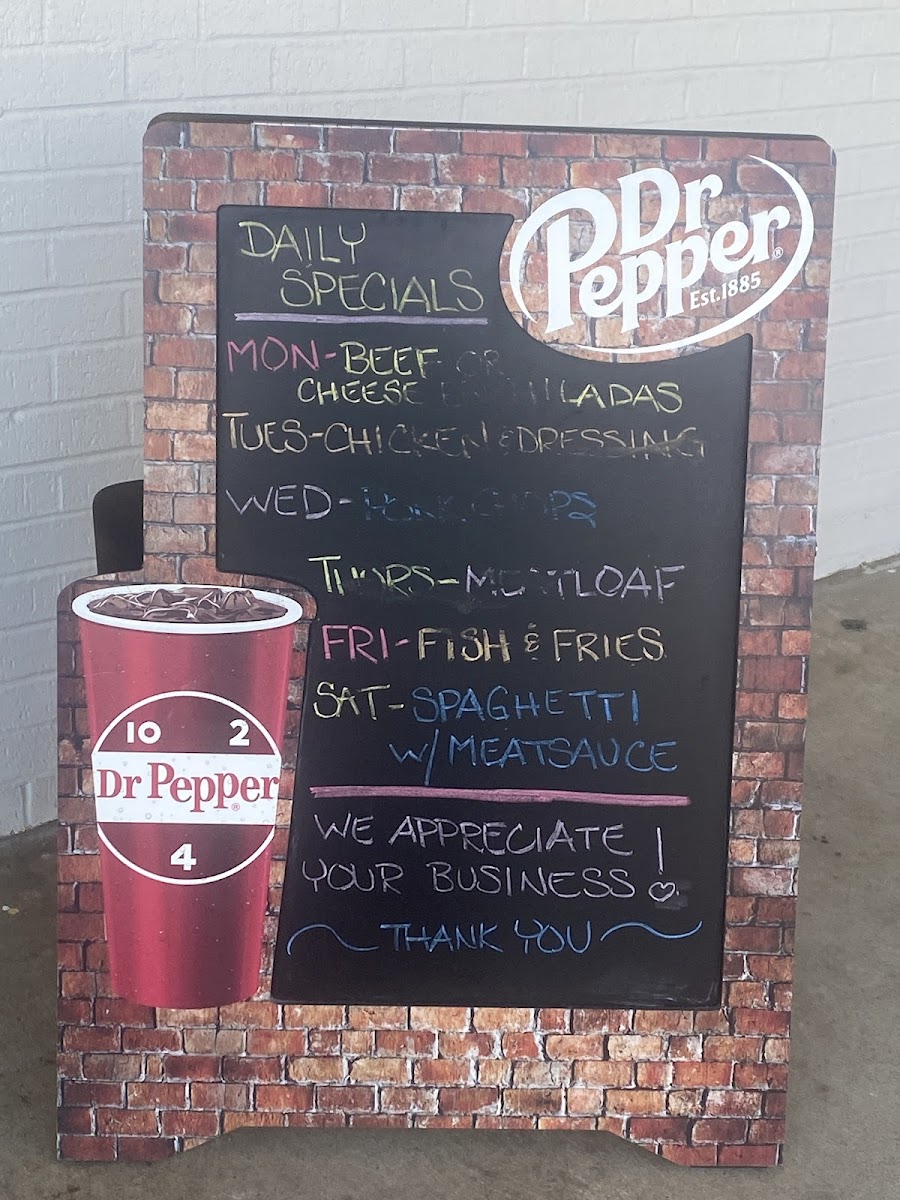 Dr
Pepper
Est.1885
DAILY
SPECIALS
MON-BEEF OR
CHEESE
TUES-CHICKEN & DRESSING
WED- PORK CHOPS
THURS-MEATLOAF
FRI-FISH & FRIES
SAT-SPAGHETTI
W/MEATSAUCE
WE APPRECIATE
YOUR BUSINESS!
THANK YOU
10 2
Dr Pepper
4